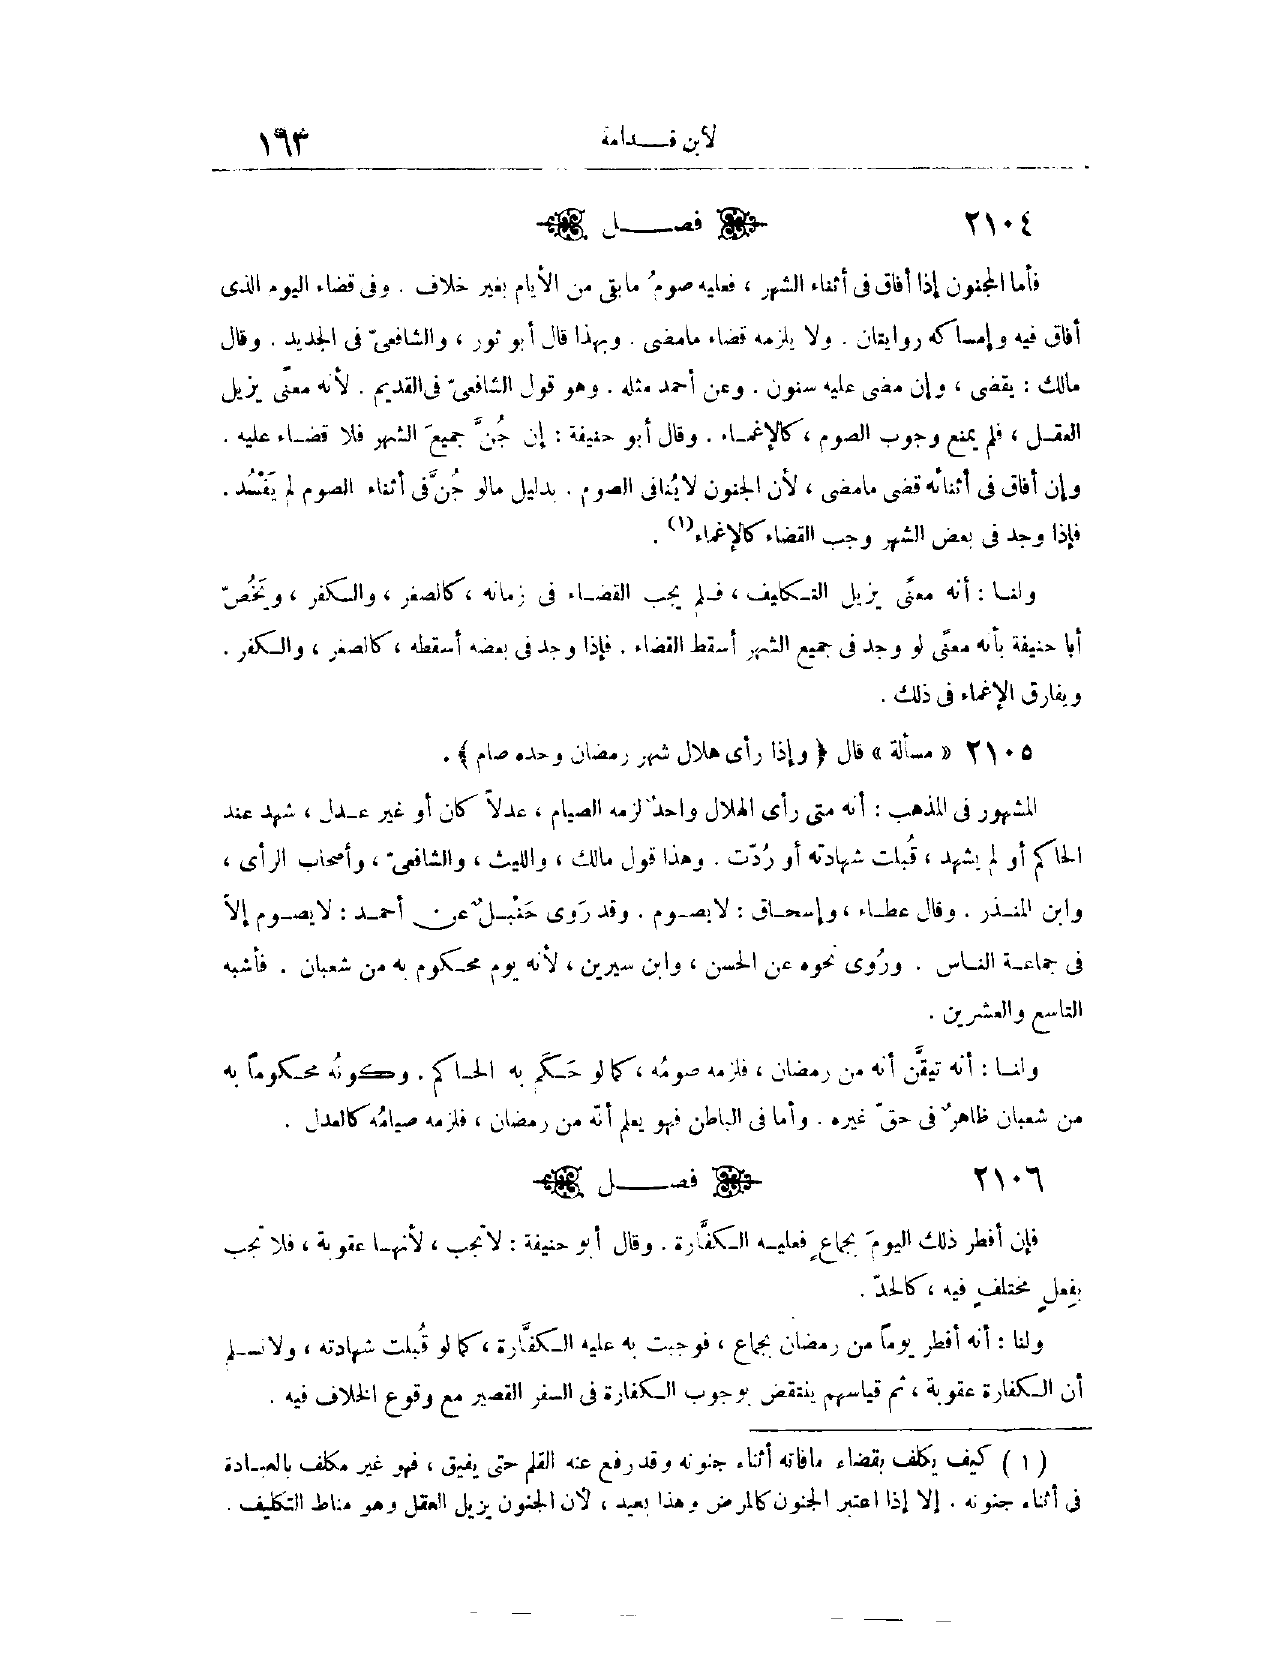 لابن قـــدامة
١٦٣
٢١٠٤ فصـــــل
فأما المجنون إذا أفاق فى أثناء الشهر ، فعليه صومُ مابقى من الأيام بغير خلاف . وفى قضاء اليوم الذى
أفاق فيه وإمساكه روايتان . ولا يلزمه قضاء مامضى . وبهذا قال أبو ثور ، والشافعىّ فى الجديد . وقال
مالك : يقضى ، وإن مضى عليه سنون . وعن أحمد مثله . وهو قول الشافعىّ فى القديم . لأنه معنًى يزيل
العقـل ، فلم يمنع وجوب الصوم ، كالإغمـاء . وقال أبو حنيفة : إن جُنَّ جميعَ الشهر فلا قضـاء عليه .
وإن أفاق فى أثنائه قضى مامضى ، لأن الجنون لايُنافى الصوم . بدليل مالو جُنَّ فى أثناء الصوم لم يَفْسُد .
فإذا وجد فى بعض الشهر وجب القضاء كالإغماء(١) .
ولنـا : أنه معنًى يزيل التـكليف ، فـلم يجب القضـاء فى زمانه ، كالصغر ، والـكفر ، ويَخُصّ
أبا حنيفة بأنه معنًى لو وجد فى جميع الشهر أسقط القضاء . فإذا وجد فى بعضه أسقطه ، كالصغر ، والـكفر .
ويفارق الإغماء فى ذلك .
٢١٠٥ « مسألة » قال ﴿ وإذا رأى هلال شهر رمضان وحده صام ﴾ .
المشهور فى المذهب : أنه متى رأى الهلال واحدٌ لزمه الصيام ، عدلاً كان أو غير عـدل ، شهد عند
الحاكم أو لم يشهد ، قُبلت شهادته أو رُدّت . وهذا قول مالك ، والليث ، والشافعىّ ، وأصحاب الرأى ،
وابن المنـذر . وقال عطـاء ، وإسحـاق : لايصـوم . وقد رَوى حَنْبـلٌ عن أحمـد : لايصـوم إلاّ
فى جماعـة النـاس . ورُوى نحوه عن الحسن ، وابن سيرين ، لأنه يوم محـكوم به من شعبان . فأشبه
التاسع والعشرين .
ولنـا : أنه تيقَّن أنه من رمضان ، فلزمه صومُه ، كما لو حَـكَم به الحـاكم . وكونُه محـكوماً به
من شعبان ظاهرٌ فى حقّ غيره . وأما فى الباطن فهو يعلم أنّه من رمضان ، فلزمه صيامُه كالعدل .
٢١٠٦ فصـــــل
فإن أفطر ذلك اليومَ بجماعٍ فعليـه الـكفَّارة . وقال أبو حنيفة : لاتجب ، لأنهـا عقوبة ، فلا تجب
بِفعلٍ مختلفٍ فيه ، كالحدّ .
ولنا : أنه أفطر يوماً من رمضان بجماع ، فوجبت به عليه الـكفَّارة ، كما لو قُبلت شهادته ، ولانسـلم
أن الـكفارة عقوبة ، ثم قياسهم ينتقض بوجوب الـكفارة فى السفر القصير مع وقوع الخلاف فيه .
( ١ ) كيف يكلف بقضاء مافاته أثناء جنونه وقد رفع عنه القلم حتى يفيق ، فهو غير مكلف بالعبـادة
فى أثناء جنونه . إلا إذا اعتبر الجنون كالمرض وهذا بعيد ، لأن الجنون يزيل العقل وهو مناط التكليف .